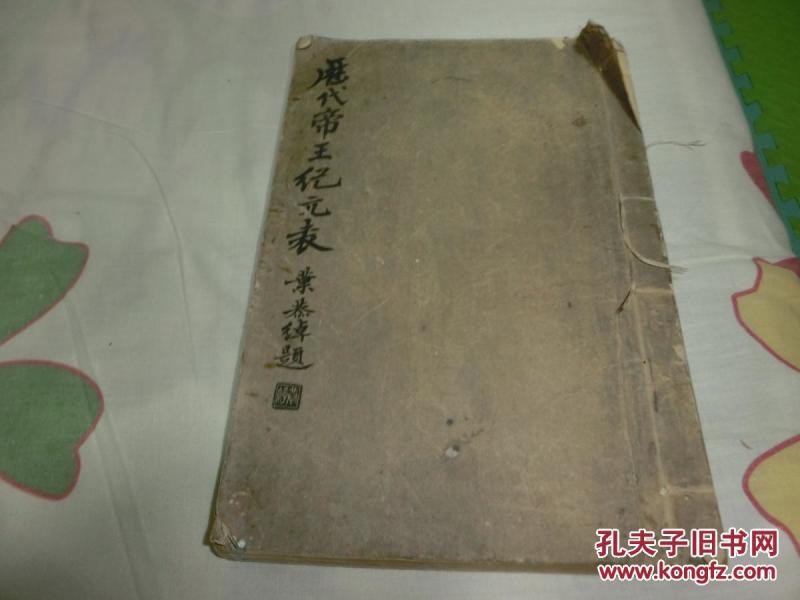 歷代帝王紀元表
葉恭綽題
孔夫子旧书网
www.kongfz.com